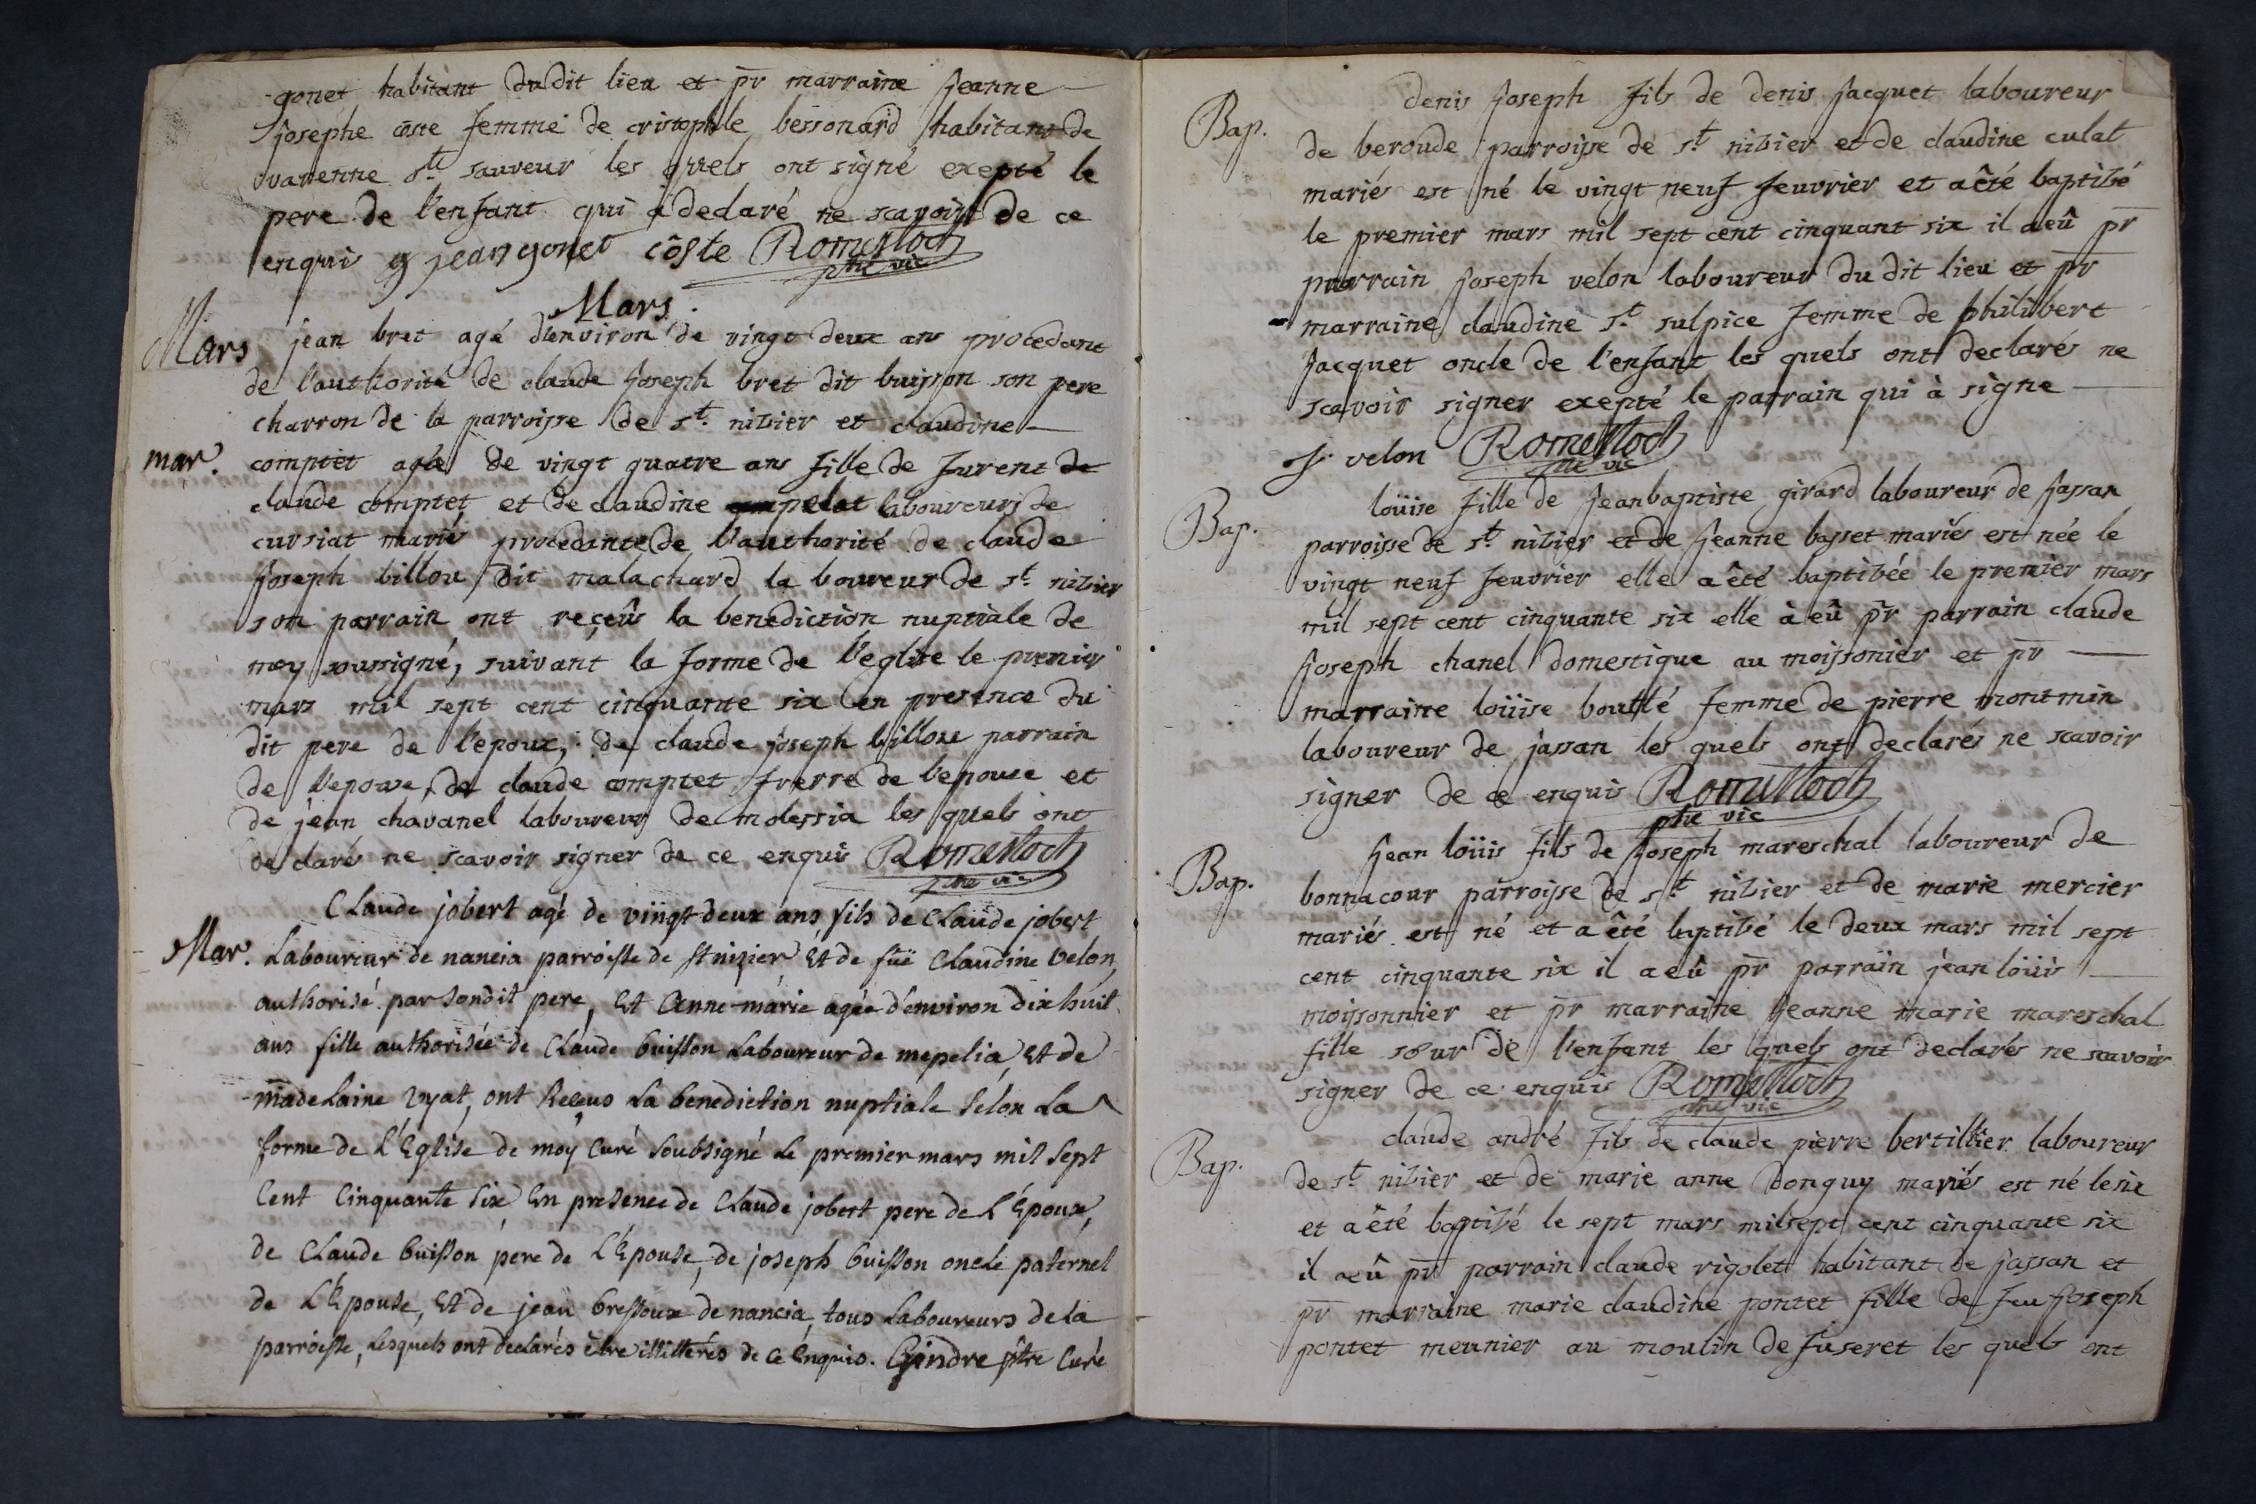 gonet habitant dudit lieu et pr marraine jeanne
josephe coste femme de cristophle bessonard habitans de
varenne st. sauveur les quels ont signé exepté le
pere de l'enfant qui a declaré ne scavoir de ce
enquis g jean gonet côste Romelloch
ptre vic
Mars
Mars jean bret agé d'environ de vingt deux ans procedant
de l'authorité de claude joseph bret dit buisson son pere
charron de la parroisse de st. nizier et claudine
mar. comptet agée de vingt quatre ans fille de furent de
claude comptet et de claudine pelat laboureurs de
cursiat mariés procedante de l'authorité de claude
joseph billou dit malachard la boureur de st. nizier
son parrain ont reçeûs la benediction nuptiale de
moy soussigné, suivant la forme de l'eglise le premier
mars mil sept cent cinquante six en presence du
dit pere de l'epoux, de claude joseph billou parrain
de l'epouse, de claude comptet frerre de l'epouse et
de jean chavanel laboureur de molessia les quels ont
declarés ne scavoir signer de ce enquis Romelloch
ptre vic
Claude jobert agé de vingt deux ans, fils de Claude jobert
Mar. Laboureur de nancia parroisse de st nizier, Et de fuë Claudine velon,
authorisé par sondit pere, Et Anne-marie agée d'environ dix huit
ans fille authorisée de Claude buisson Laboureur de mepelia, Et de
madelaine vyat, ont Receus La benediction nuptiale selon La
forme de L'Eglise de moy Curé soubsigné Le premier mars mil sept
Cent Cinquante Six En presence de Claude jobert pere de L'Epoux,
de Claude buisson pere de L'Epouse, de joseph buisson oncle paternel
de L'Epouse, Et de jean bressoux de nancia, tous Laboureurs de La
parroisse, Lesquels ont declarés être illitterés de ce Enquis. Gindre ptre Curé
denis joseph fils de denis jacquet laboureur
Bap. de beroude parroisse de st nizier et de claudine culat
mariés est né le vingt neuf feuvrier et a êté baptisé
le premier mars mil sept cent cinquant six il a eû pr
parrain joseph velon laboureur du dit lieu et pr
marraine claudine st. sulpice femme de philibert
jacquet oncle de l'enfant les quels ont declarés ne
scavoir signer exepté le parrain qui à signe
J. velon Romelloch
ptre vic
loüise fille de jeanbaptiste girard laboureur de jassan
Bap. parroisse de st. nizier et de jeanne basset mariés est née le
vingt neuf feuvrier elle a êté baptisée le premier mars
mil sept cent cinquante six elle à eû pr parrain claude
joseph chanel domestique au moissonier et pr
marraine loüise boutlé femme de pierre montmin
laboureur de jassan les quels ont declarés ne scavoir
signer de ce enquis Romelloch
ptre vic
jean loüis fils de joseph mareschal laboureur de
Bap. bonnacour parroisse de st nizier et de marie mercier
mariés est né et a êté baptisé le deux mars mil sept
cent cinquante six il a eû pr parrain jean loüis
moissonnier et pr marraine jeanne marie mareschal
fille sœur de l'enfant les quels ont declarés ne scavoir
signer de ce enquis Romelloch
ptre vic
claude andré fils de claude pierre bertillier laboureur
Bap. de st. nizier et de marie anne donguy mariés est né le six
et a êté baptisé le sept mars mil sept cent cinquante six
il a eû pr parrain claude rigolet habitant de jassan et
pr marraine marie claudine pontet fille de feu joseph
pontet meunier au moulin de fuseret les quels ont